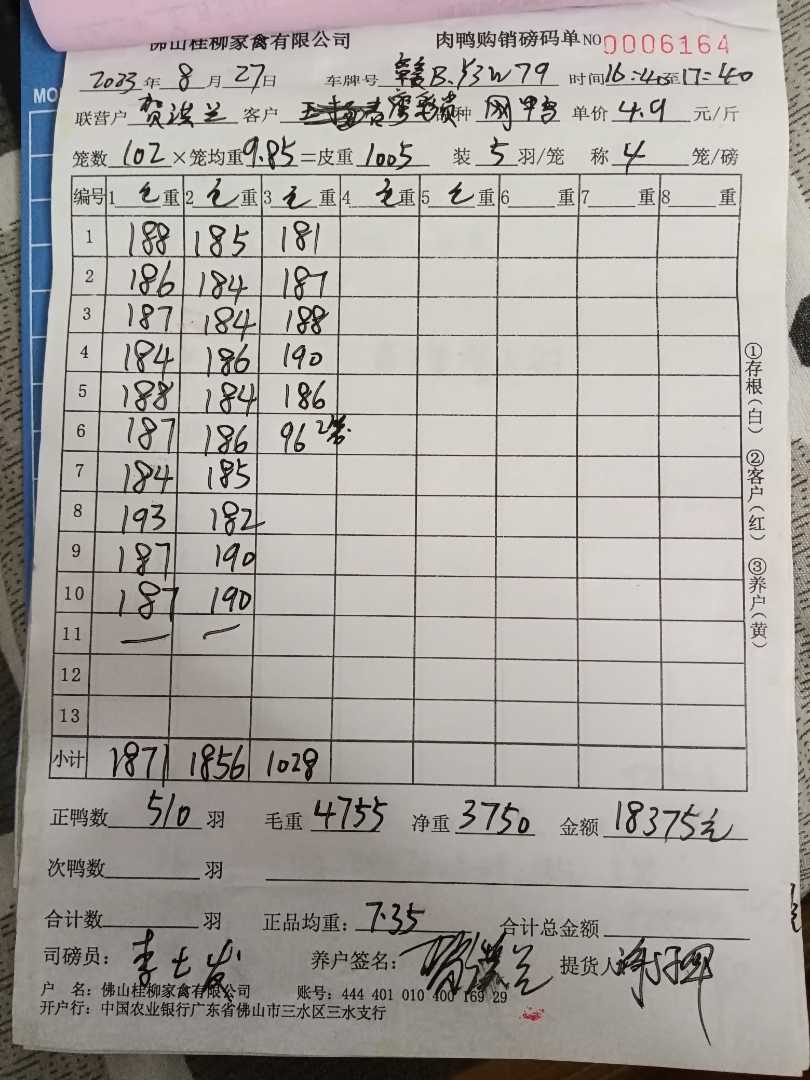 佛山桂柳家禽有限公司 肉鸭购销磅码单 NO 0006164
2023年8月27日 车牌号 赣B·53W79 时间16:40至17:40
联营户 贺洪兰 客户 种 单价 4.9 元/斤
笼数 102 ×笼均重 9.85 =皮重 1005 装 5 羽/笼 称 4 笼/磅
编号 1 毛 重 2 毛 重 3 毛 重 4 毛 重 5 毛 重 6 重 7 重 8 重
1 188 185 181
2 186 184 187
3 187 184 188
4 184 186 190
5 188 184 186
6 187 186 96 2笼
7 184 185
8 193 182
9 187 190
10 187 190
11 — —
12
13
小计 1871 1856 1028
正鸭数 510 羽 毛重 4755 净重 3750 金额 18375元
次鸭数 羽
合计数 羽 正品均重: 7.35 合计总金额
司磅员: 李士发 养户签名: 贺洪兰 提货人
户 名: 佛山桂柳家禽有限公司 账号: 444 401 010 400 169 29
开户行: 中国农业银行广东省佛山市三水区三水支行
①存根(白) ②客户(红) ③养户(黄)
MO